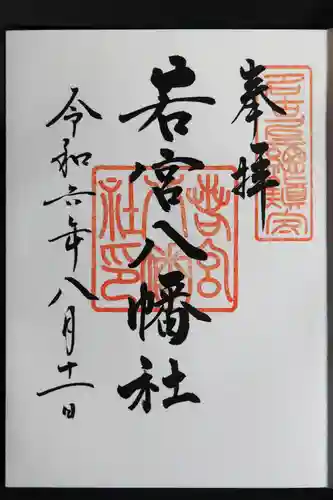 奉拝
若宮八幡社
若宮八幡社印
令和六年八月十一日